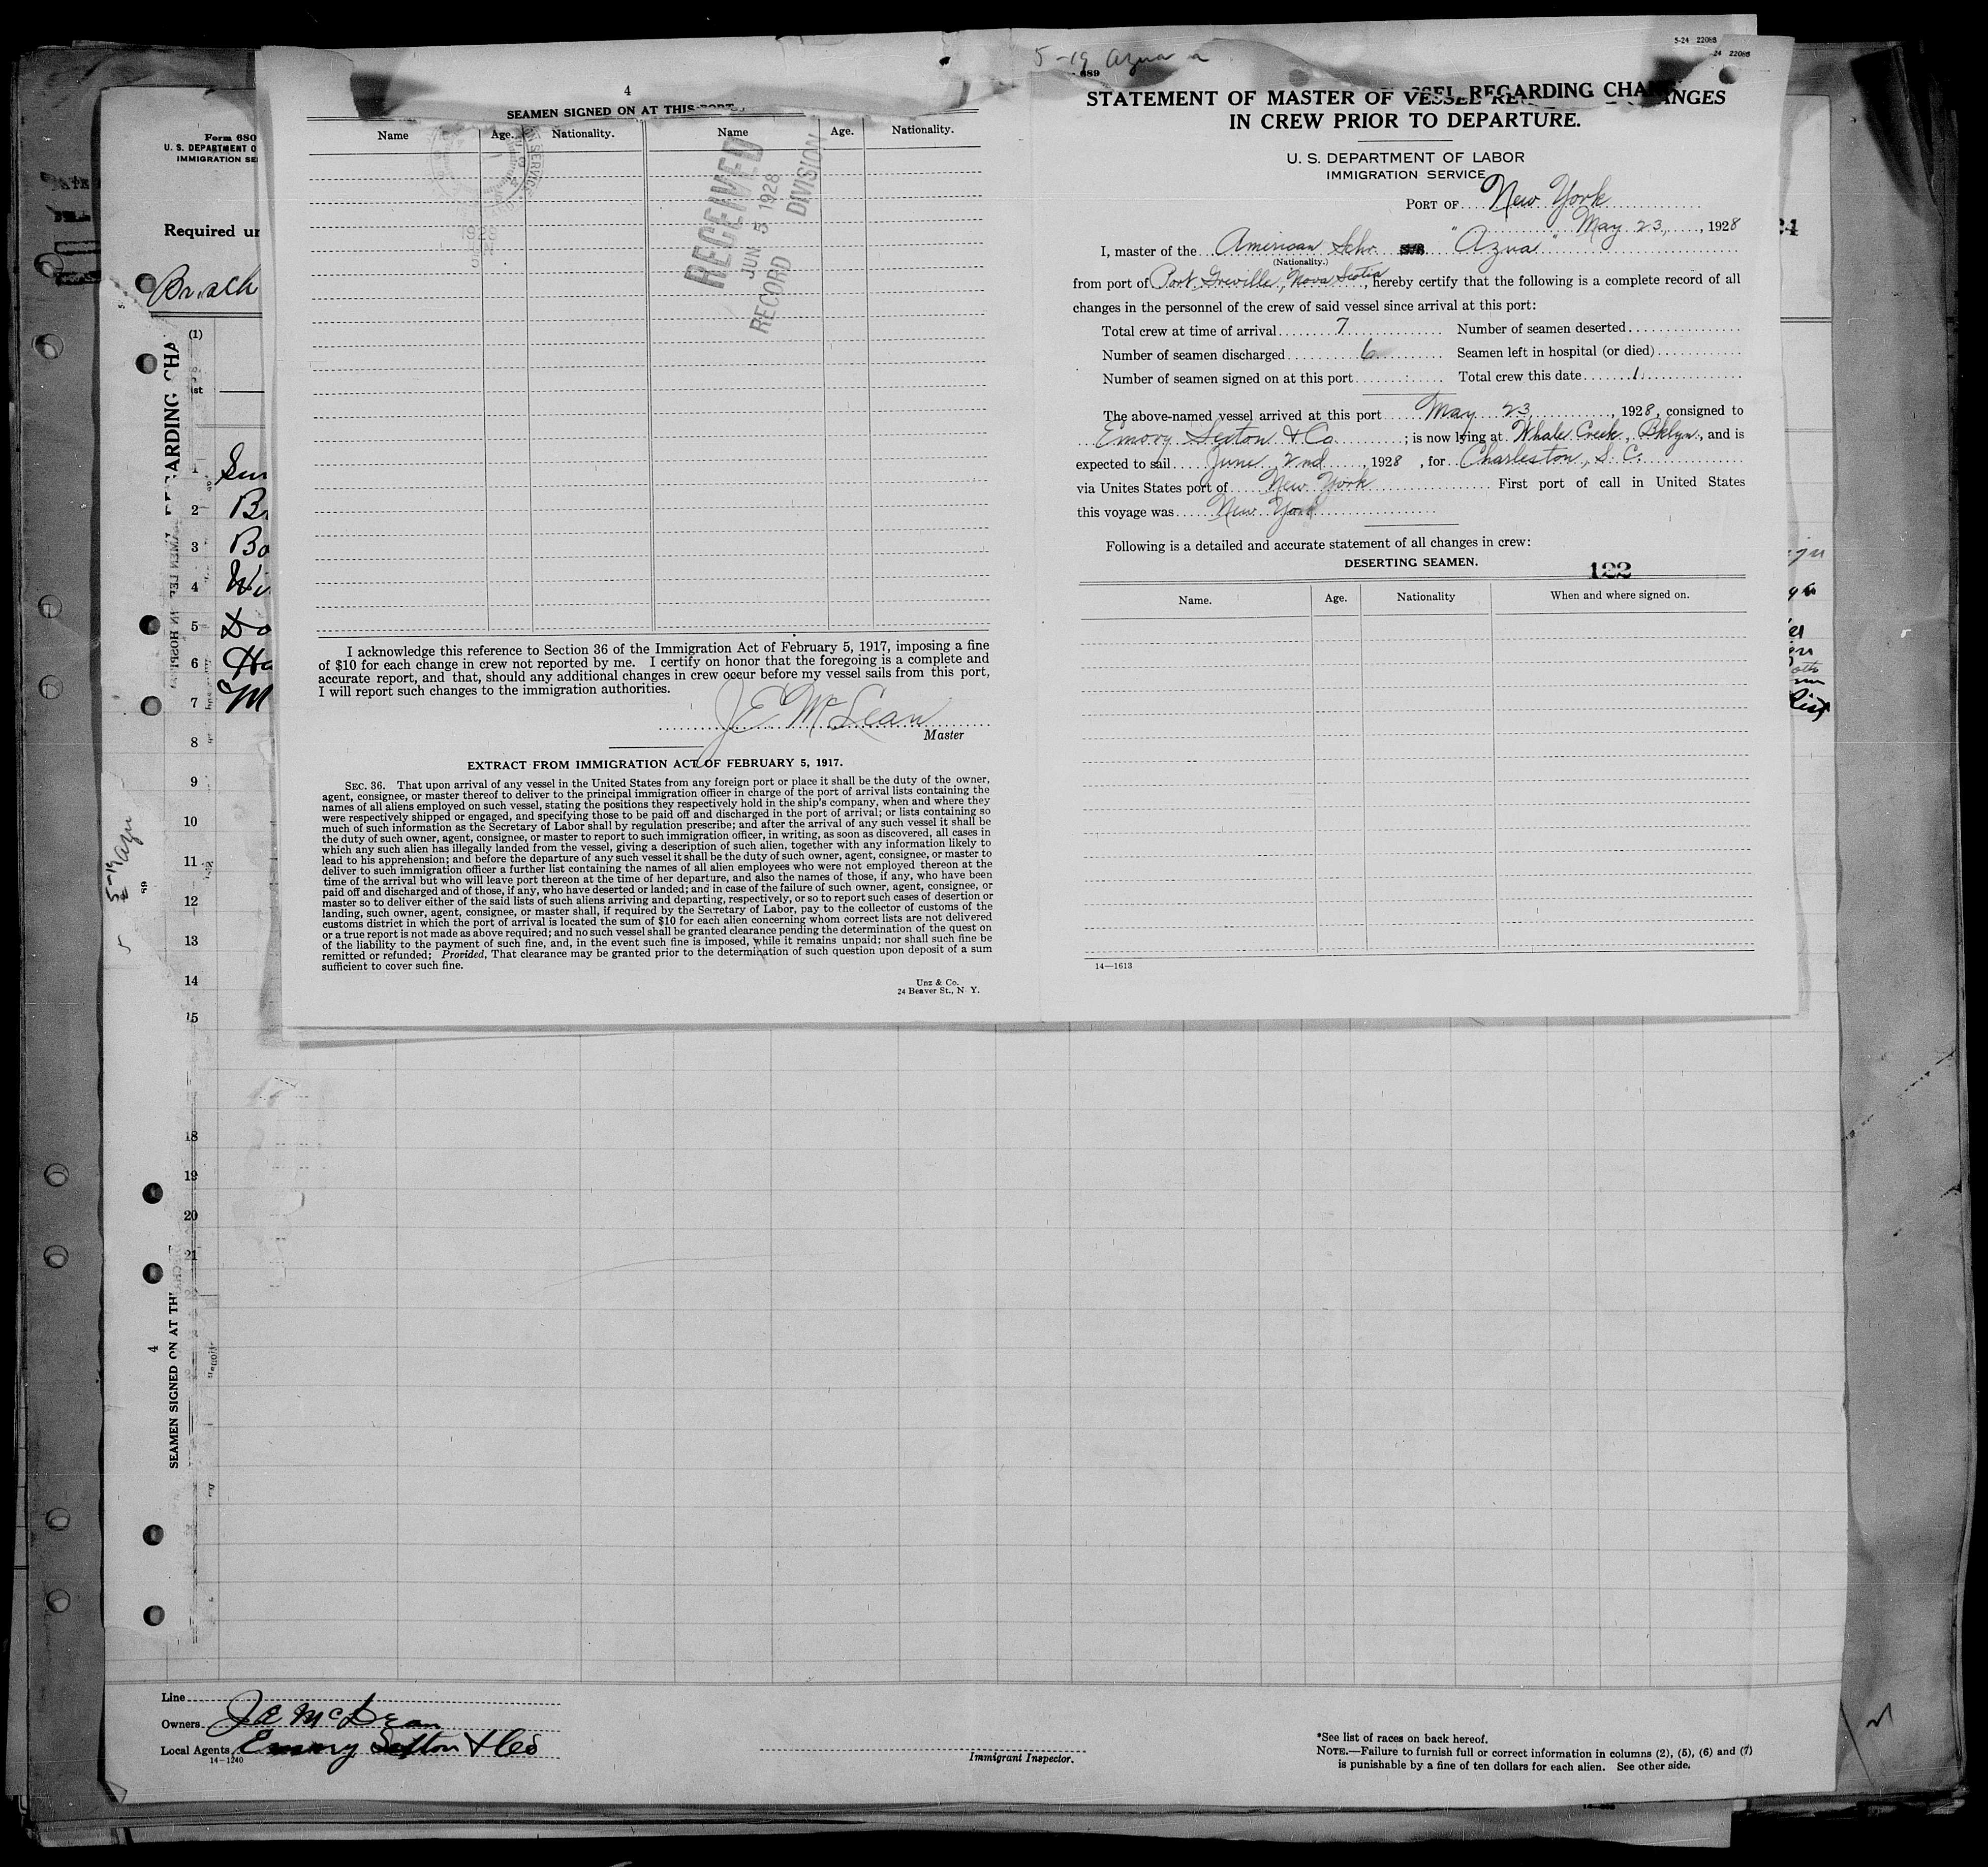 5-24 22088
24 22088
5-19 Azua
689
4
SEAMEN SIGNED ON AT THIS PORT
Name Age. Nationality. Name Age. Nationality.
RECEIVED
JUN 5 1928
RECORD DIVISION
SERVICE
1928
I acknowledge this reference to Section 36 of the Immigration Act of February 5, 1917, imposing a fine
of $10 for each change in crew not reported by me. I certify on honor that the foregoing is a complete and
accurate report, and that, should any additional changes in crew occur before my vessel sails from this port,
I will report such changes to the immigration authorities.
J E McLean
Master
EXTRACT FROM IMMIGRATION ACT OF FEBRUARY 5, 1917.
SEC. 36. That upon arrival of any vessel in the United States from any foreign port or place it shall be the duty of the owner,
agent, consignee, or master thereof to deliver to the principal immigration officer in charge of the port of arrival lists containing the
names of all aliens employed on such vessel, stating the positions they respectively hold in the ship's company, when and where they
were respectively shipped or engaged, and specifying those to be paid off and discharged in the port of arrival; or lists containing so
much of such information as the Secretary of Labor shall by regulation prescribe; and after the arrival of any such vessel it shall be
the duty of such owner, agent, consignee, or master to report to such immigration officer, in writing, as soon as discovered, all cases in
which any such alien has illegally landed from the vessel, giving a description of such alien, together with any information likely to
lead to his apprehension; and before the departure of any such vessel it shall be the duty of such owner, agent, consignee, or master to
deliver to such immigration officer a further list containing the names of all alien employees who were not employed thereon at the
time of the arrival but who will leave port thereon at the time of her departure, and also the names of those, if any, who have been
paid off and discharged and of those, if any, who have deserted or landed; and in case of the failure of such owner, agent, consignee, or
master so to deliver either of the said lists of such aliens arriving and departing, respectively, or so to report such cases of desertion or
landing, such owner, agent, consignee, or master shall, if required by the Secretary of Labor, pay to the collector of customs of the
customs district in which the port of arrival is located the sum of $10 for each alien concerning whom correct lists are not delivered
or a true report is not made as above required; and no such vessel shall be granted clearance pending the determination of the quest on
of the liability to the payment of such fine, and, in the event such fine is imposed, while it remains unpaid; nor shall such fine be
remitted or refunded; Provided, That clearance may be granted prior to the determination of such question upon deposit of a sum
sufficient to cover such fine.
Unz & Co.
24 Beaver St., N Y.
STATEMENT OF MASTER OF VESSEL REGARDING CHANGES
IN CREW PRIOR TO DEPARTURE.
U. S. DEPARTMENT OF LABOR
IMMIGRATION SERVICE
PORT OF New York
May 23, 1928
I, master of the American Schr. "Azua"
(Nationality.)
from port of Port Greville, Nova Scotia, hereby certify that the following is a complete record of all
changes in the personnel of the crew of said vessel since arrival at this port:
Total crew at time of arrival 7 Number of seamen deserted
Number of seamen discharged 6 Seamen left in hospital (or died)
Number of seamen signed on at this port Total crew this date 1
The above-named vessel arrived at this port May 23, 1928, consigned to
Emory Sexton & Co ; is now lying at Whale Creek, Bklyn, and is
expected to sail June 2nd, 1928, for Charleston, S. C.
via Unites States port of New York First port of call in United States
this voyage was New York
Following is a detailed and accurate statement of all changes in crew:
DESERTING SEAMEN.
122
Name. Age. Nationality When and where signed on.
14—1613
Form 680
U. S. DEPARTMENT O
IMMIGRATION SE
Required un
(1)
1
2 Br
3 Bo
4 Wi
5 Do
6 Ha
7 M
8
9
10
11
12
13
14
15
18
19
20
21
5-19 Azu
89
4
SEAMEN SIGNED ON AT TH
Line
Owners J E McLean
Local Agents Emory Sexton & Co
14-1240
Immigrant Inspector.
*See list of races on back hereof.
NOTE.—Failure to furnish full or correct information in columns (2), (5), (6) and (7)
is punishable by a fine of ten dollars for each alien. See other side.